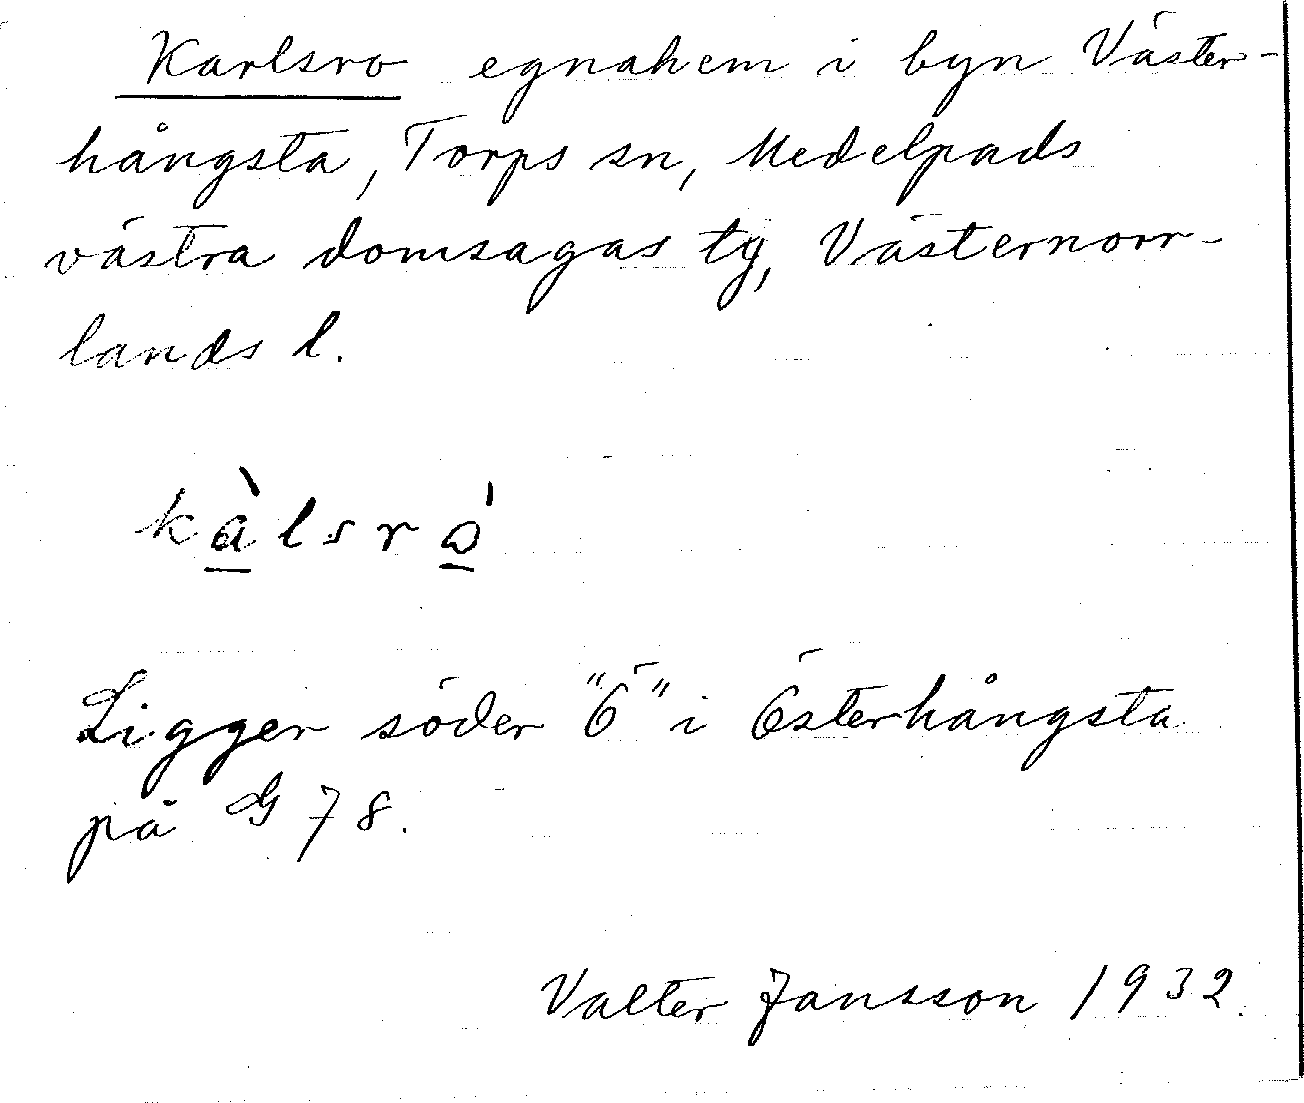 Karlsro egnahem i byn Väster-
hångsta, Torps sn, Medelpads
västra domsagas tg, Västernorr-
lands l.
kàlsró
Ligger söder "Ö" i Österhångsta
på G 78.
Valter Jansson 1932.